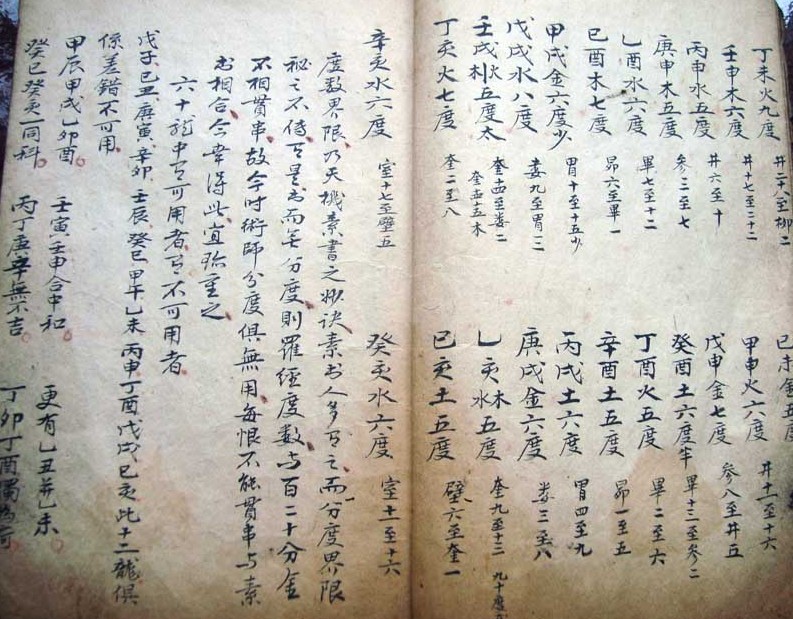 丁未火九度 井二十八至柳二 己未金五度 井十一至十六
壬申木六度 井十七至二十二 甲申火六度
丙申水五度 井六至十 戊申金七度 參八至井五
庚申木五度 參三至七 癸酉土六度半 畢十三至參二
乙酉水六度 畢七至十二 丁酉火五度 畢二至六
己酉木七度 昴六至畢一 辛酉土五度 昴一至五
甲戌金六度少 胃十至十五少 丙戌土六度 胃四至九
戊戌水八度 婁九至胃三 庚戌金六度 婁三至八
壬戌 五度太 奎十四至婁二 乙亥 五度 奎九至十三
丁亥火七度 奎二至八 己亥土五度 壁六至奎一
辛亥水六度 室十七至壁五 癸亥水六度 室十一至十六
度数界限乃天機素書之妙诀素书人多有之而分度界限
秘之不傳有是书而無分度則羅經度数与百二十分金
不相貫串故今时術師分度俱無用每恨不能貫串与素
书相合今幸得此宜珍重之
六十龍中有可用者有不可用者
戊子己丑庚寅辛卯壬辰癸巳甲午乙未丙申丁酉戊戌己亥此十二龍俱
係差錯不可用
甲辰甲戌乙卯酉 壬寅壬申合中和 更有乙丑并乙未
癸巳癸亥一同科 丙丁庚辛無不吉 丁卯丁酉